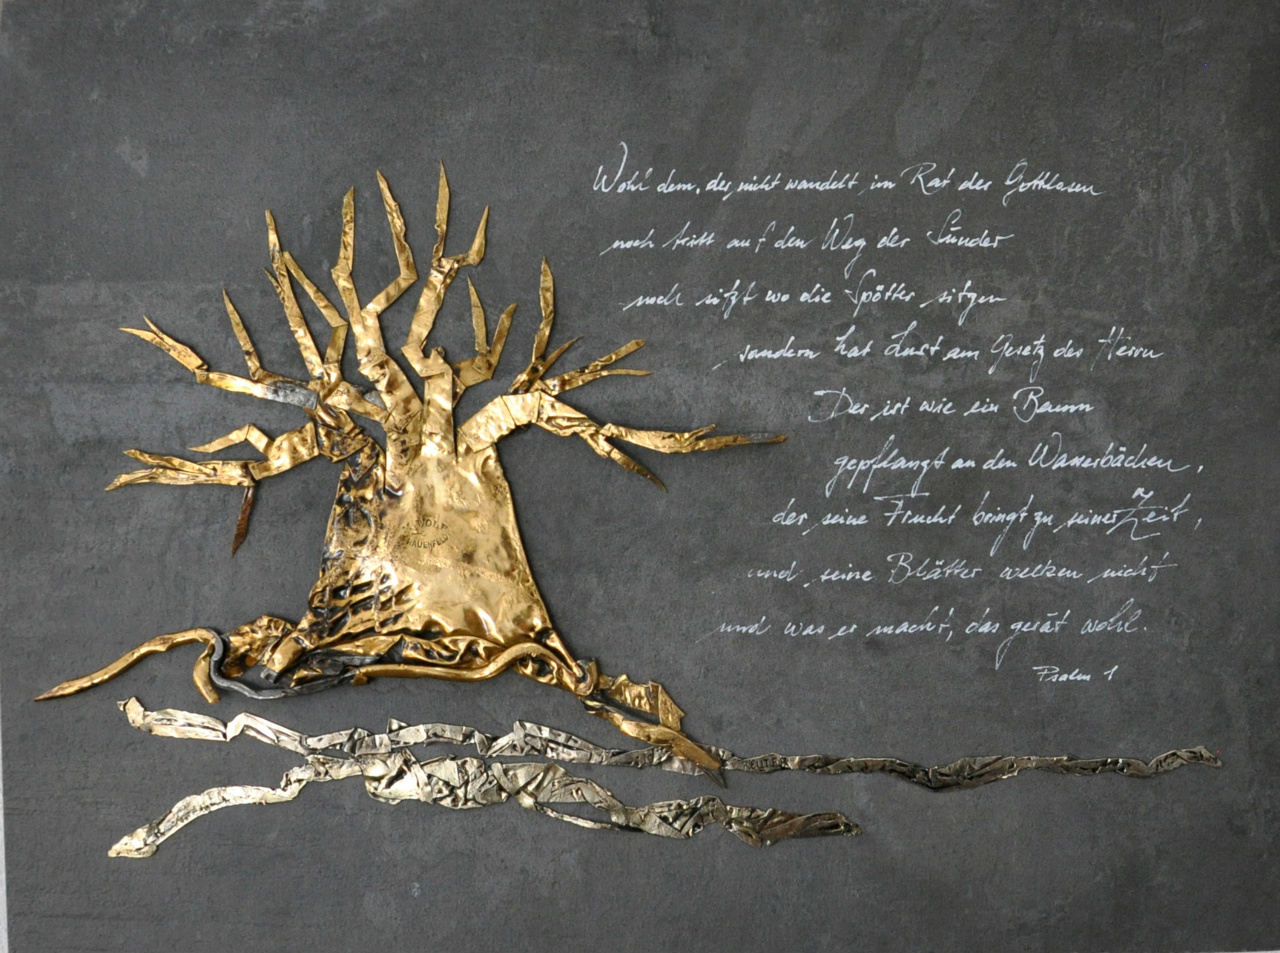 Wohl dem, der nicht wandelt im Rat der Gottlosen
noch tritt auf den Weg der Sünder
noch sitzt wo die Spötter sitzen
sondern hat Lust am Gesetz des Herrn
Der ist wie ein Baum
gepflanzt an den Wasserbächen,
der seine Frucht bringt zu seiner Zeit,
und seine Blätter welken nicht
und was er macht, das gerät wohl.
Psalm 1
REUTER